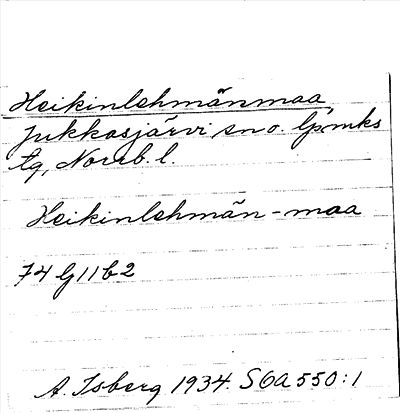 Heikinlehmänmaa
Jukkasjärvi sn o. lpmks
tg, Norrb. l.
Heikinlehmän-maa
74 G 11 b 2
A. Isberg 1934. SOA 550:1